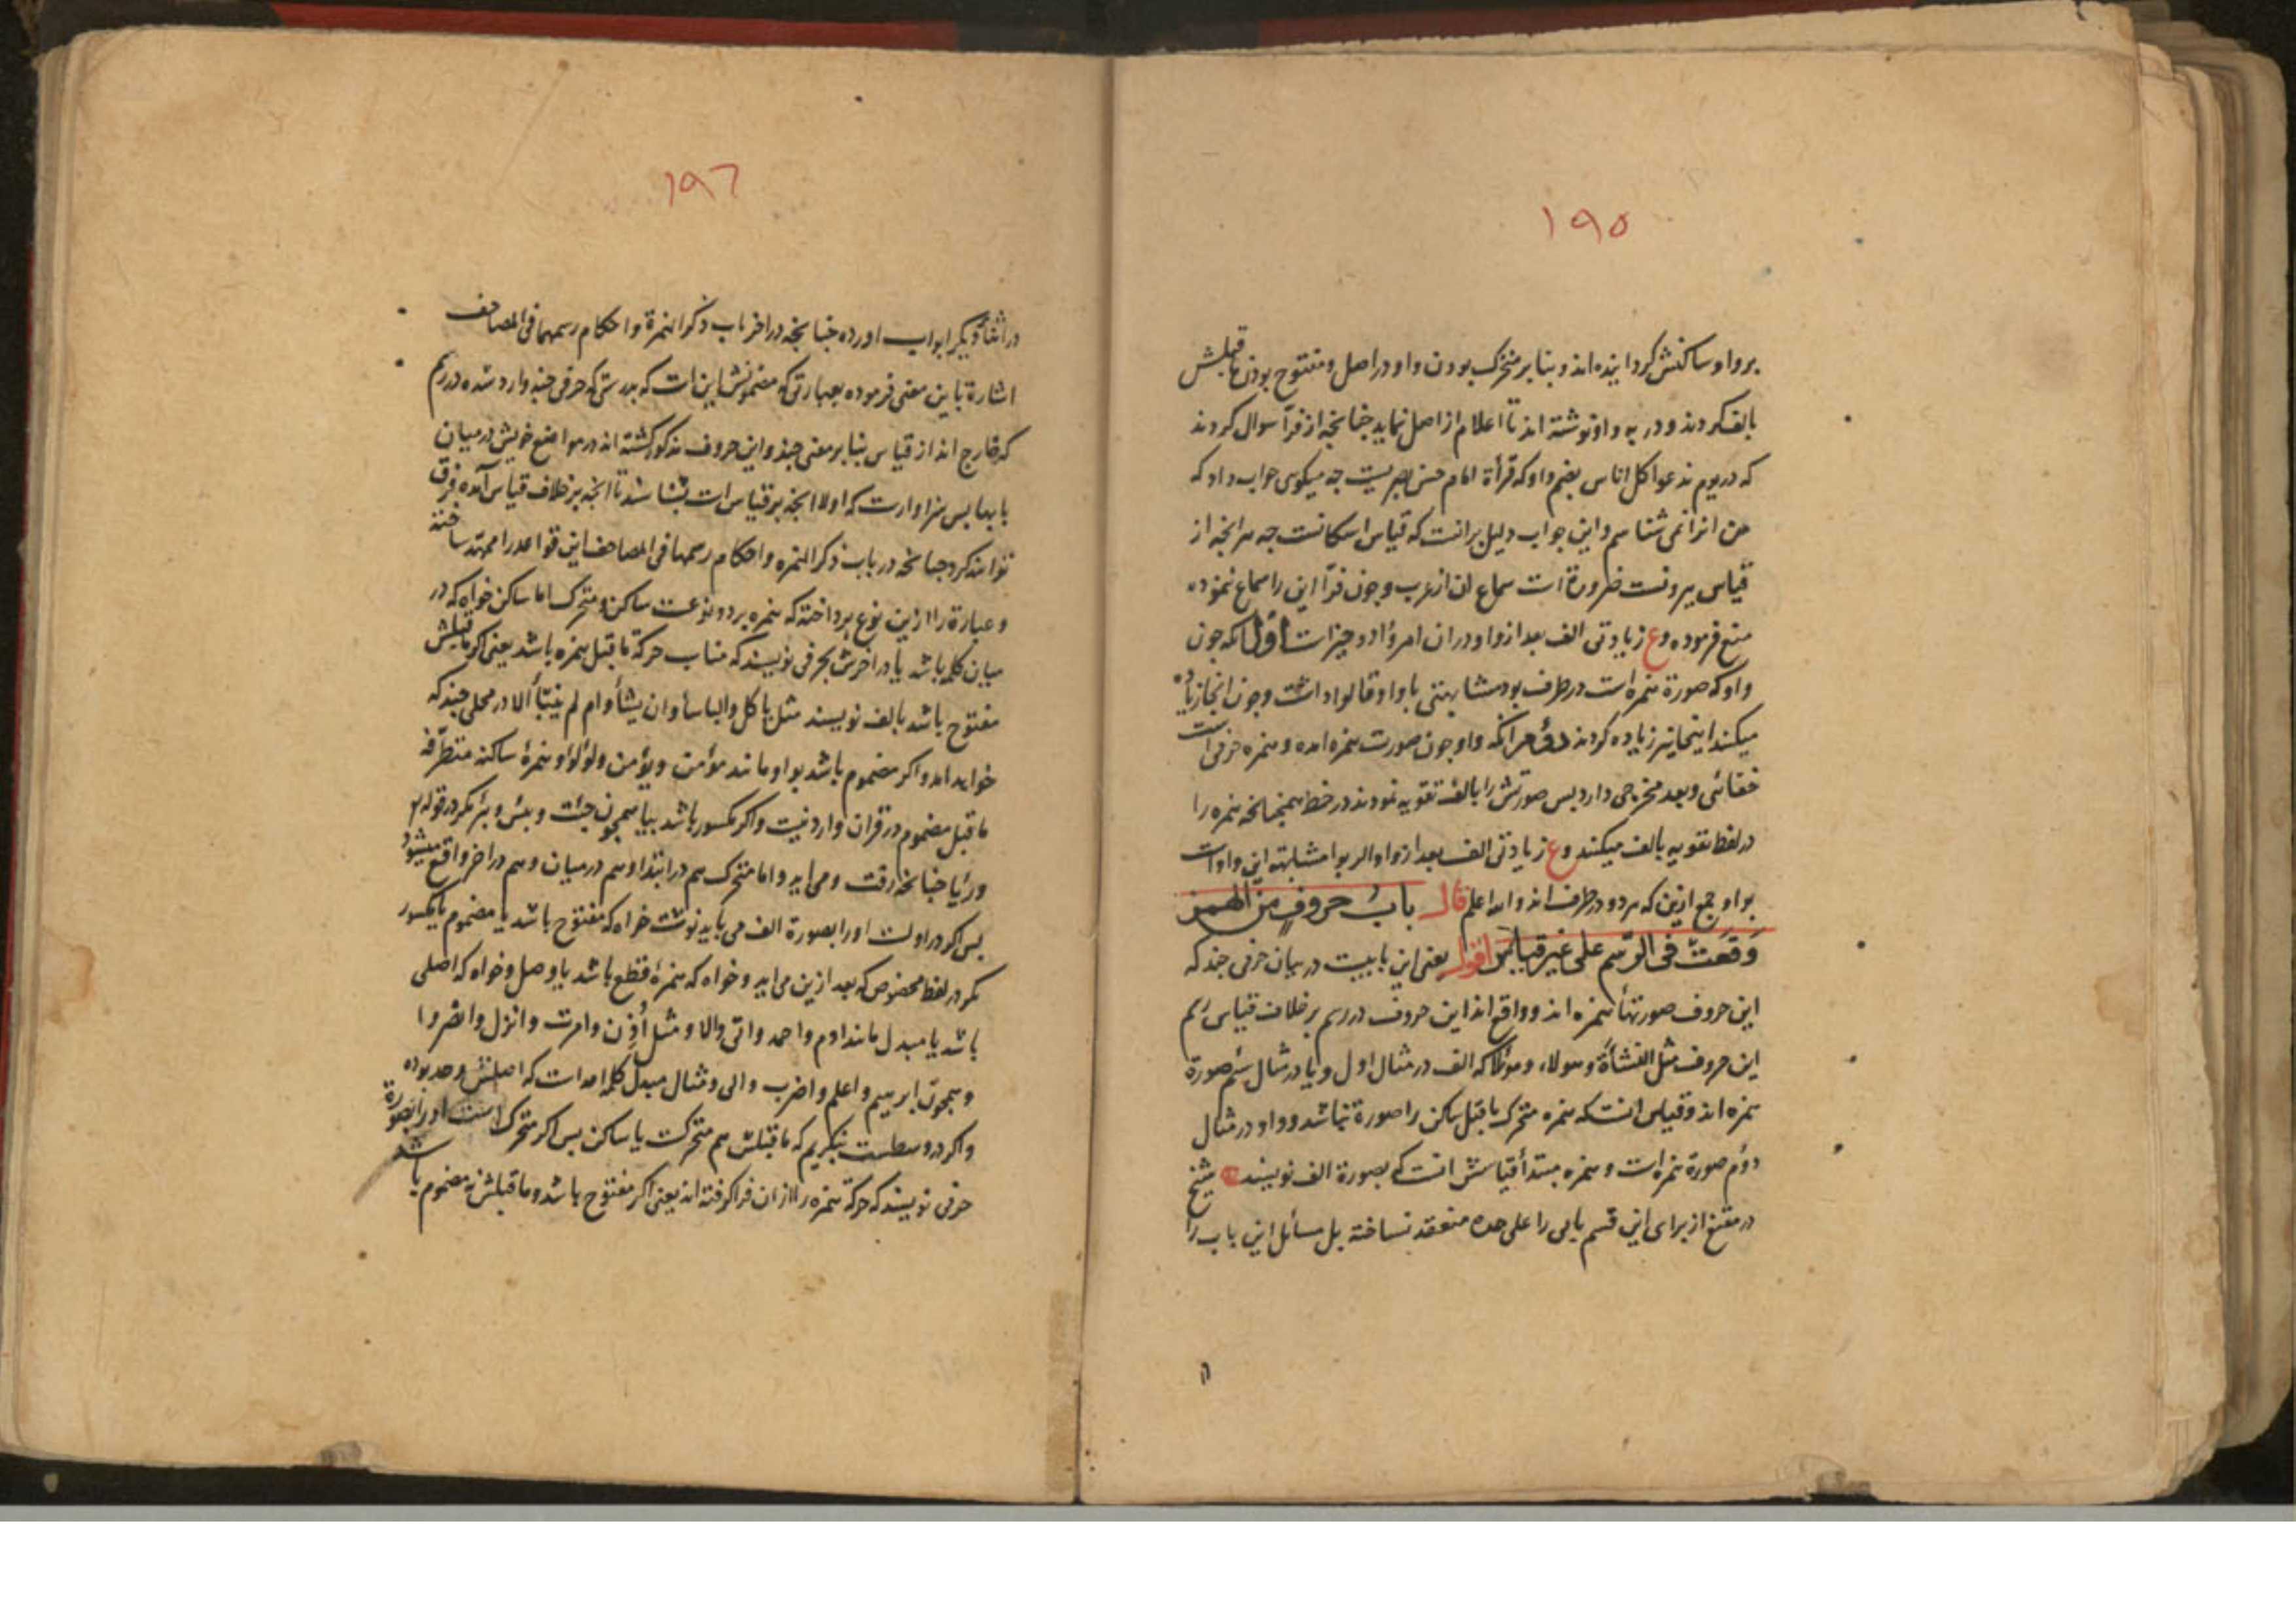 ۱۹۵
بر واو ساکنش کردانیده اند و بنابر متحرک بودن واو در اصل و مفتوح بودن ماقبلش
بالف کردند و در یه واو نوشته اند تا اعلام از اصل نماید چنانچه از فرآ سوال کردند
که در یوم ندعوا کل اناس بضم واو که قرأة امام حسن بصریست چه میکوی جواب داد که
من انرا نمی شناسم و این جواب دلیل برانست که قیاس اسکانست چه هر انچه از
قیاس بیرونست ضرورة است سماع ان از عرب و چون فرآ این را سماع ننموده
منع فرموده وع زیادتی الف بعد از واو در ان امرؤا دو چیز است اول انکه چون
واو که صورة همزه است در طرف بود مشابهتی با واو قالوا داشت و چون انجا زیاده
میکنند اینجا نیز زیاده کردند دوم انکه واو چون صورت همزه امده و همزه حرفی است
خفائی و بعد مخرجی دارد پس صورتش را بالف تقویه نمودند در خط همچنانچه همزه را
در لفظ تقویه بالف میکنند وع زیادتی الف بعد از واو الربوا مشابهة این واوات
بواو جمع ازین که هر دو در طرف اند والله اعلم قال باب حروف من الهمز
وقعت فی الرسم علی غیر قیاس اقول یعنی این بابیست در بیان حرفی چند که
این حروف صورتهأ همزه اند و واقع اند این حروف در رسم بر خلاف قیاس رسم
این حروف مثل النشأة و هولاء و موئلا که الف در مثال اول و یا در مثال سیم صورة
همزه اند و قیاس انست که همزه متحرک ماقبل ساکن را صورة نباشد و واو در مثال
دوم صورة همزه است و همزه مبتدأ قیاسش انست که بصورة الف نویسند شیخ
در مقنع از برای این قسم بابی را علی حده منعقد نساخته بل مسائل این باب را
۱۹۶
در اثنأ دیکر ابواب اورده چنانچه در اخر باب ذکر الهمزة و احکام رسمها فی المصاحف
اشارة باین معنی فرموده بعبارتی که مضمونش این است که بدرستی که حرفی چند وارد شده در رسم
که خارج اند از قیاس بنا بر معنی چند و این حروف مذکور کشته اند در مواضع خویش در میان
بابها پس سزاوارست که اولا انچه بر قیاس است بشناسند تا انچه بر خلاف قیاس آمده فرق
توانند کرد چنانچه در باب ذکر الهمزه و احکام رسمها فی المصاحف این قواعد را ممهد ساخته
و عبارة را ازین نوع پرداخته که همزه بر دو نوعست ساکن و متحرک اما ساکن خواه که در
میان کلمه باشد یا در اخرش بحرفی نویسند که مناسب حرکة ماقبل همزه باشد یعنی اکر ماقبلش
مفتوح باشد بالف نویسند مثل یاکل و الباسأ و ان یشأ و ام لم ینبأ الا در محلی چند که
خواهد امد و اکر مضموم باشد بواو مانند مؤمن و یؤمن و لؤلؤ و همزهٔ ساکنه متطرفه
ماقبل مضموم در قران وارد نیست و اکر مکسور باشد بیا همچون جئت و بئس و بئر مکر در قوله
ورئیا چنانچه رفت و می اید و اما متحرک هم در ابتدا و هم در میان و هم در اخر واقع میشود
پس اکر در اولست اورا بصورة الف می باید نوشت خواه که مفتوح باشد یا مضموم یا مکسور
مکر در لفظ مخصوص که بعد ازین می اید و خواه که همزهٔ قطع باشد یا وصل و خواه که اصلی
باشد یا مبدل مانند ادم و احمد و اتی و الا و مثل أوذن و امرت و انزل و انصروا
و همچون ابرهیم و اعلم و اضرب و الی و مثال مبدل کلمه احد است که اصلش وحد بوده
و اکر در وسطست بنکریم که ماقبلش هم متحرکست یا ساکن پس اکر متحرک است اورا بصورة
حرفی نویسند که حرکة همزه را ازان فرا کرفته اند یعنی اکر مفتوح باشد و ماقبلش نه مضموم باشد